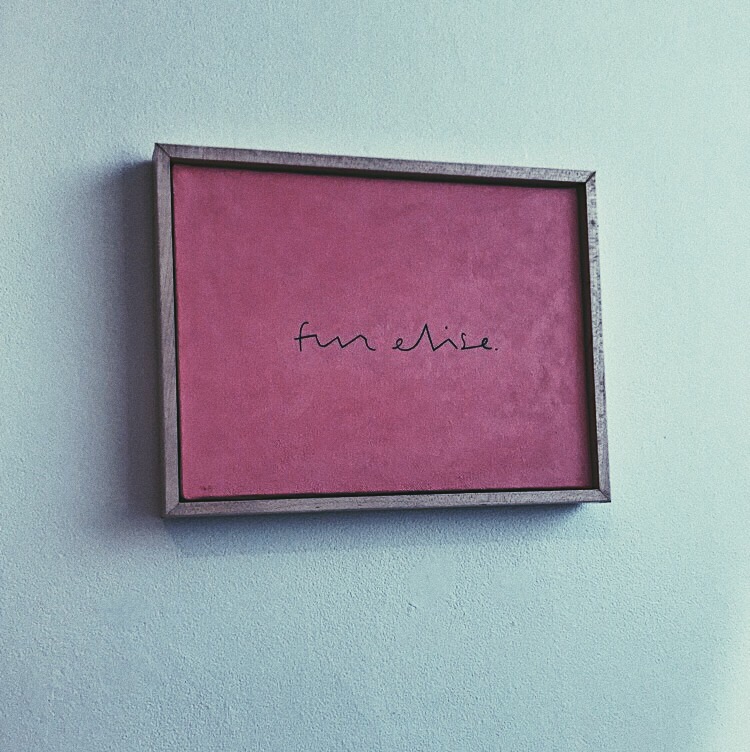 fur elise.